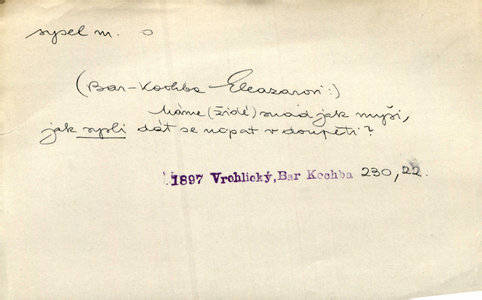 sysel m.
(Bar-Kochba Eleazarovi:)
Máme (židé) snad jak myši,
jak sysli dát se nápat v doupěti?
1897 Vrchlický, Bar Kochba 230,22.